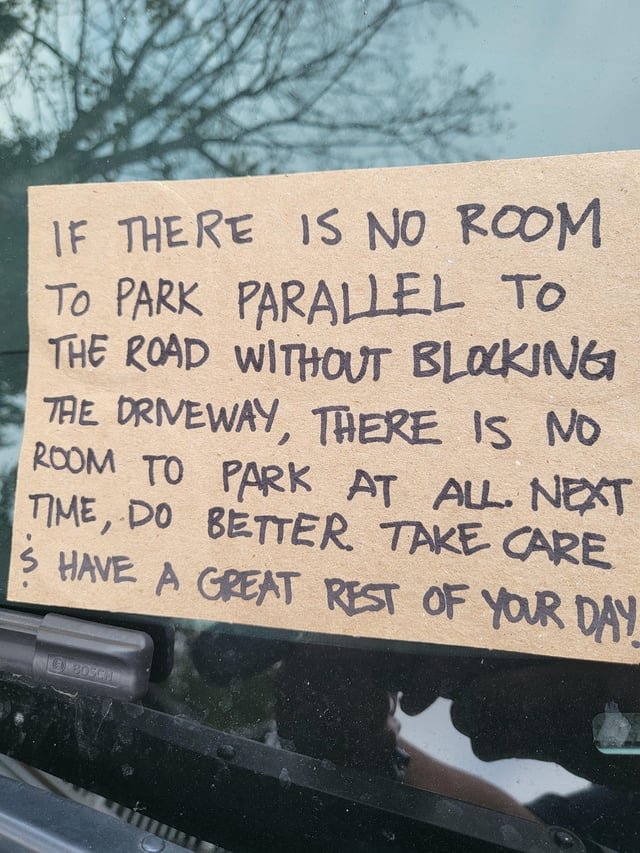 IF THERE IS NO ROOM
TO PARK PARALLEL TO
THE ROAD WITHOUT BLOCKING
THE DRIVEWAY, THERE IS NO
ROOM TO PARK AT ALL. NEXT
TIME, DO BETTER. TAKE CARE
& HAVE A GREAT REST OF YOUR DAY!
BOSCH